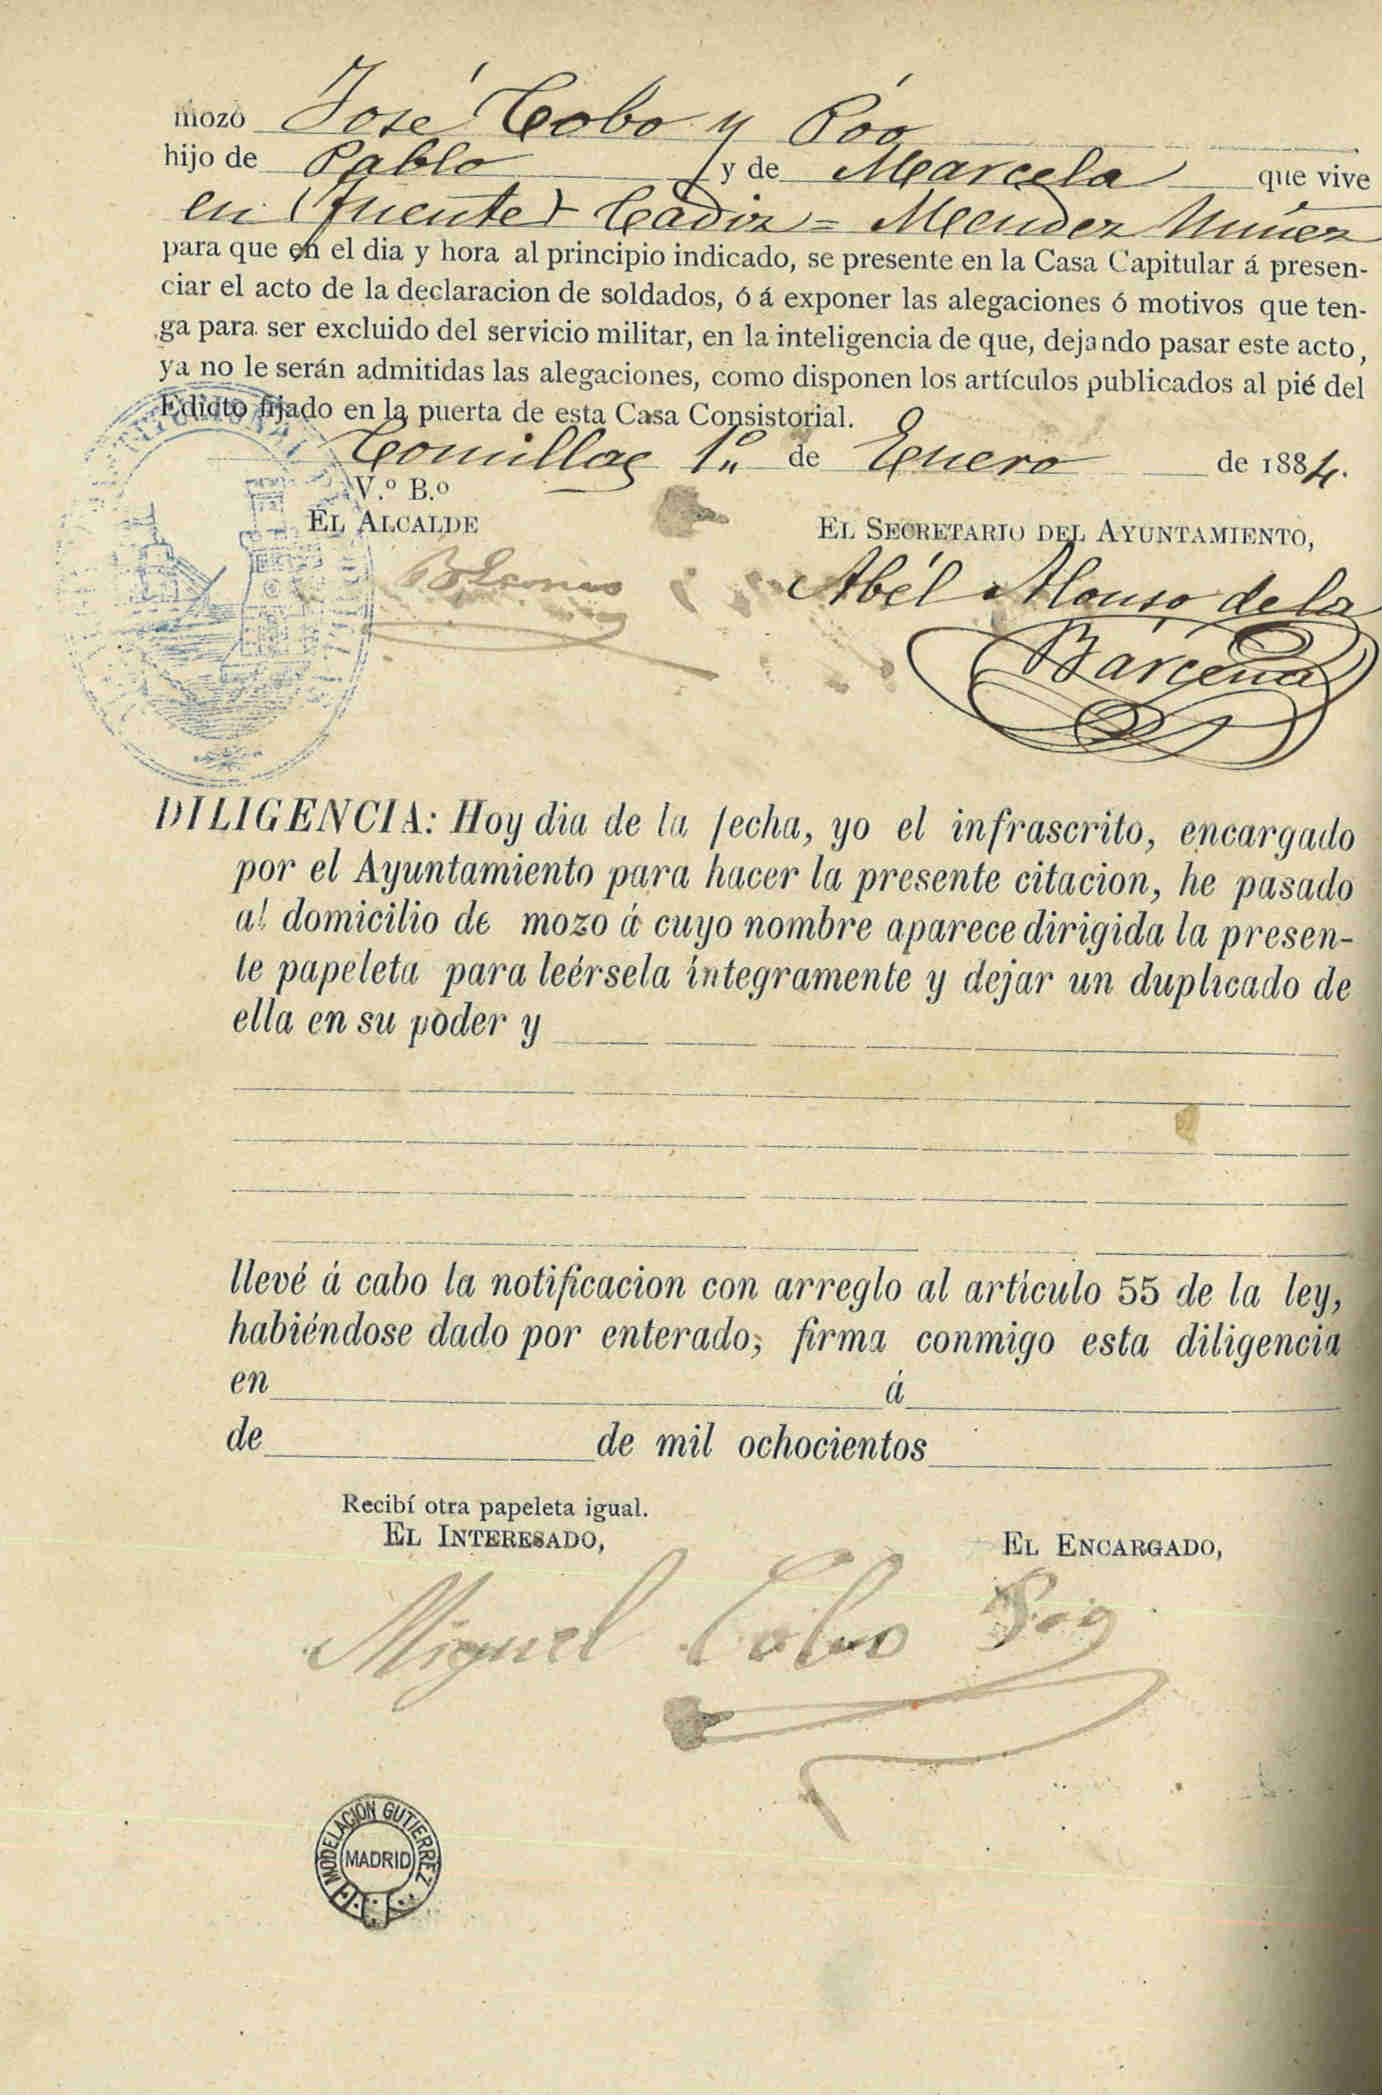 mozo José Cobo y Póo
hijo de Pablo y de Marcela que vive
en (fuente) Cadiz = Mendez Nuñez
para que en el dia y hora al principio indicado, se presente en la Casa Capitular á presen-
ciar el acto de la declaracion de soldados, ó á exponer las alegaciones ó motivos que ten-
ga para ser excluido del servicio militar, en la inteligencia de que, dejando pasar este acto,
ya no le serán admitidas las alegaciones, como disponen los artículos publicados al pié del
Edicto fijado en la puerta de esta Casa Consistorial.
Comillas 1º de Enero de 1884.
V.º B.º
EL ALCALDE
EL SECRETARIO DEL AYUNTAMIENTO,
Abél Alonso de la
Bárcena
DILIGENCIA: Hoy dia de la fecha, yo el infrascrito, encargado
por el Ayuntamiento para hacer la presente citacion, he pasado
al domicilio de mozo á cuyo nombre aparece dirigida la presen-
te papeleta para leérsela íntegramente y dejar un duplicado de
ella en su poder y
llevé á cabo la notificacion con arreglo al artículo 55 de la ley,
habiéndose dado por enterado, firma conmigo esta diligencia
en á
de de mil ochocientos
Recibí otra papeleta igual.
EL INTERESADO,
EL ENCARGADO,
Miguel Cobo Poo
MODELACIÓN GUTIERREZ
MADRID